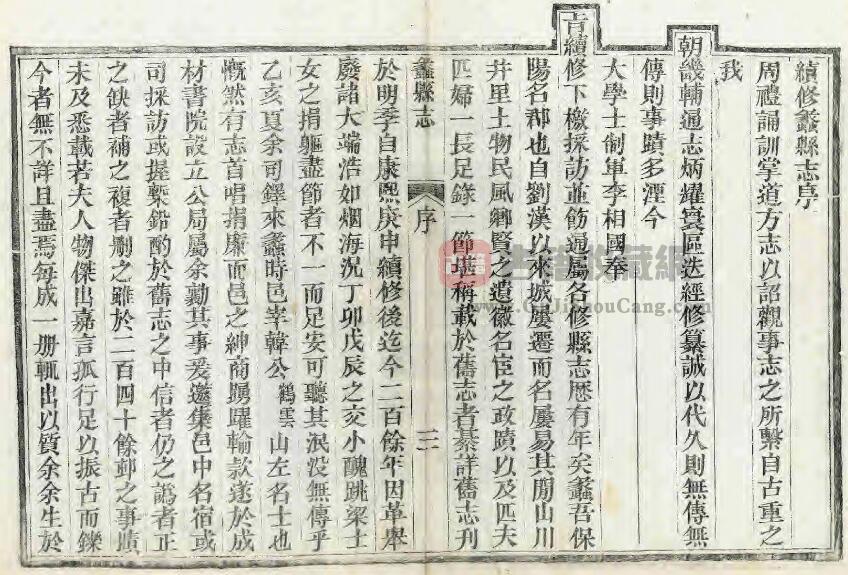 續修蠡縣志序
周禮誦訓掌道方志以詔觀事志之所繫自古重之
我
朝畿輔通志炳耀寰區迭經修纂誠以代久則無傳無
傳則事蹟多湮今
大學士制軍李相國奉
旨續修下檄採訪並飭通屬各修縣志歷有年矣蠡吾保
陽名郡也自劉漢以來城屢遷而名屢易其間山川
井里土物民風鄉賢之遺徽名宦之政蹟以及匹夫
匹婦一長足錄一節堪稱載於舊志者綦詳舊志刋
蠡縣志
序
三
於明季自康熙庚申續修後迄今二百餘年因革舉
廢諸大端浩如烟海況丁卯戊辰之交小醜跳梁士
女之捐軀盡節者不一而足安可聽其泯没無傳乎
乙亥夏余司鐸來蠡時邑宰韓公鶴雲山左名士也
慨然有志首唱捐廉而邑之紳商踴躍輸款遂於成
材書院設立公局屬余勷其事爰邀集邑中名宿或
司採訪或握槧鉛酌於舊志之中信者仍之譌者正
之缺者補之複者刪之雖於二百四十餘邨之事蹟
未及悉載若夫人物傑出嘉言孤行足以振古而鑠
今者無不詳且盡焉每成一册輒出以質余余生於
古籍收藏網
www.GuJiShouCang.com